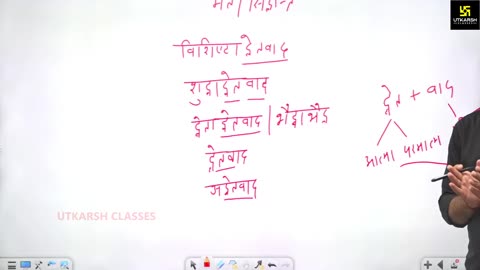 मत / सिद्धान्त
विशिष्टाद्वैतवाद
शुद्धाद्वैतवाद
द्वैताद्वैतवाद / भेदाभेद
द्वैतवाद
अद्वैतवाद
द्वैत + वाद
आत्मा परमात्मा
UTKARSH CLASSES
UTKARSH